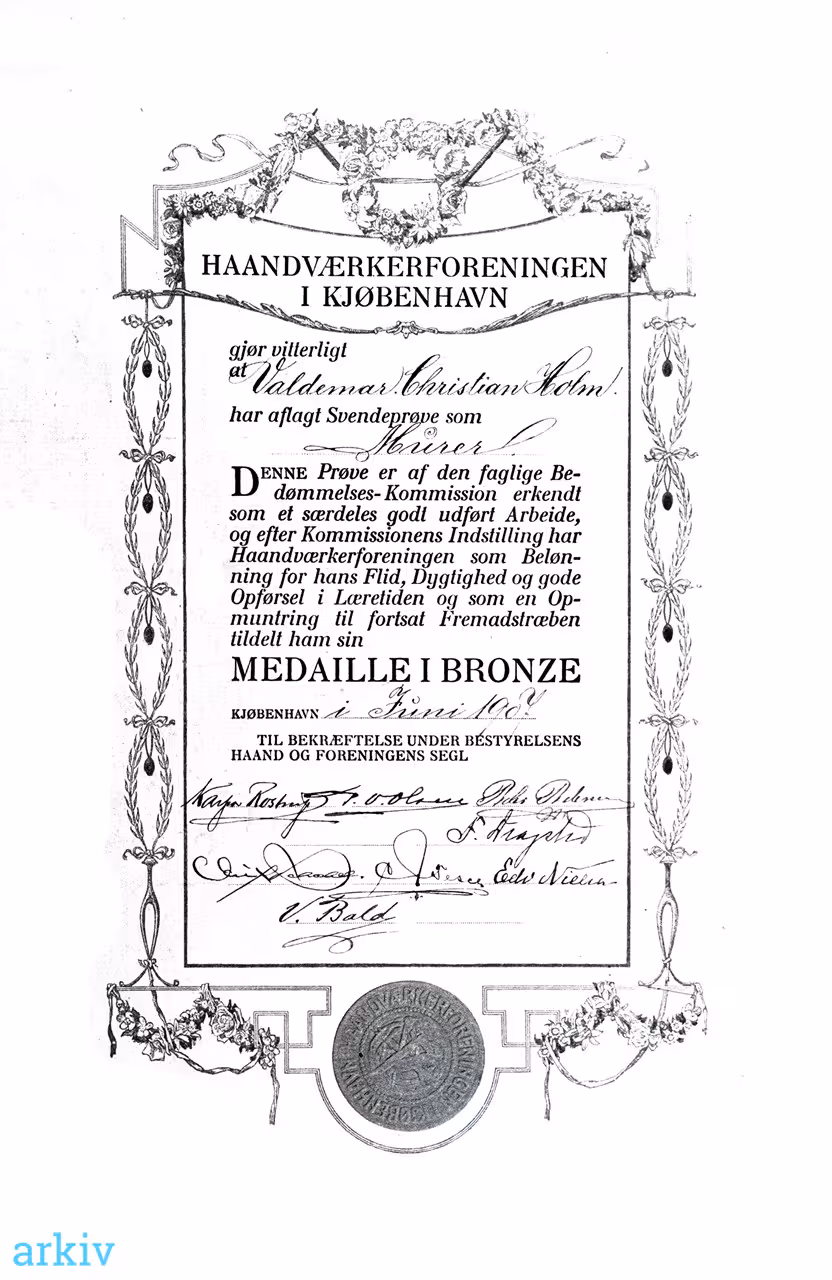 HAANDVÆRKERFORENINGEN
I KJØBENHAVN
gjør vitterligt
at Valdemar Christian Holm
har aflagt Svendeprøve som
Murer
DENNE Prøve er af den faglige Be-
dømmelses-Kommission erkendt
som et særdeles godt udført Arbeide,
og efter Kommissionens Indstilling har
Haandværkerforeningen som Beløn-
ning for hans Flid, Dygtighed og gode
Opførsel i Læretiden og som en Op-
muntring til fortsat Fremadstræben
tildelt ham sin
MEDAILLE I BRONZE
KJØBENHAVN i Juni 1907
TIL BEKRÆFTELSE UNDER BESTYRELSENS
HAAND OG FORENINGENS SEGL
Rostrup F. O. Olsen
F. Dragsted
Edv Nielsen
V. Bald
HAANDVÆRKERFORENINGEN I KJØBENHAVN
arkiv